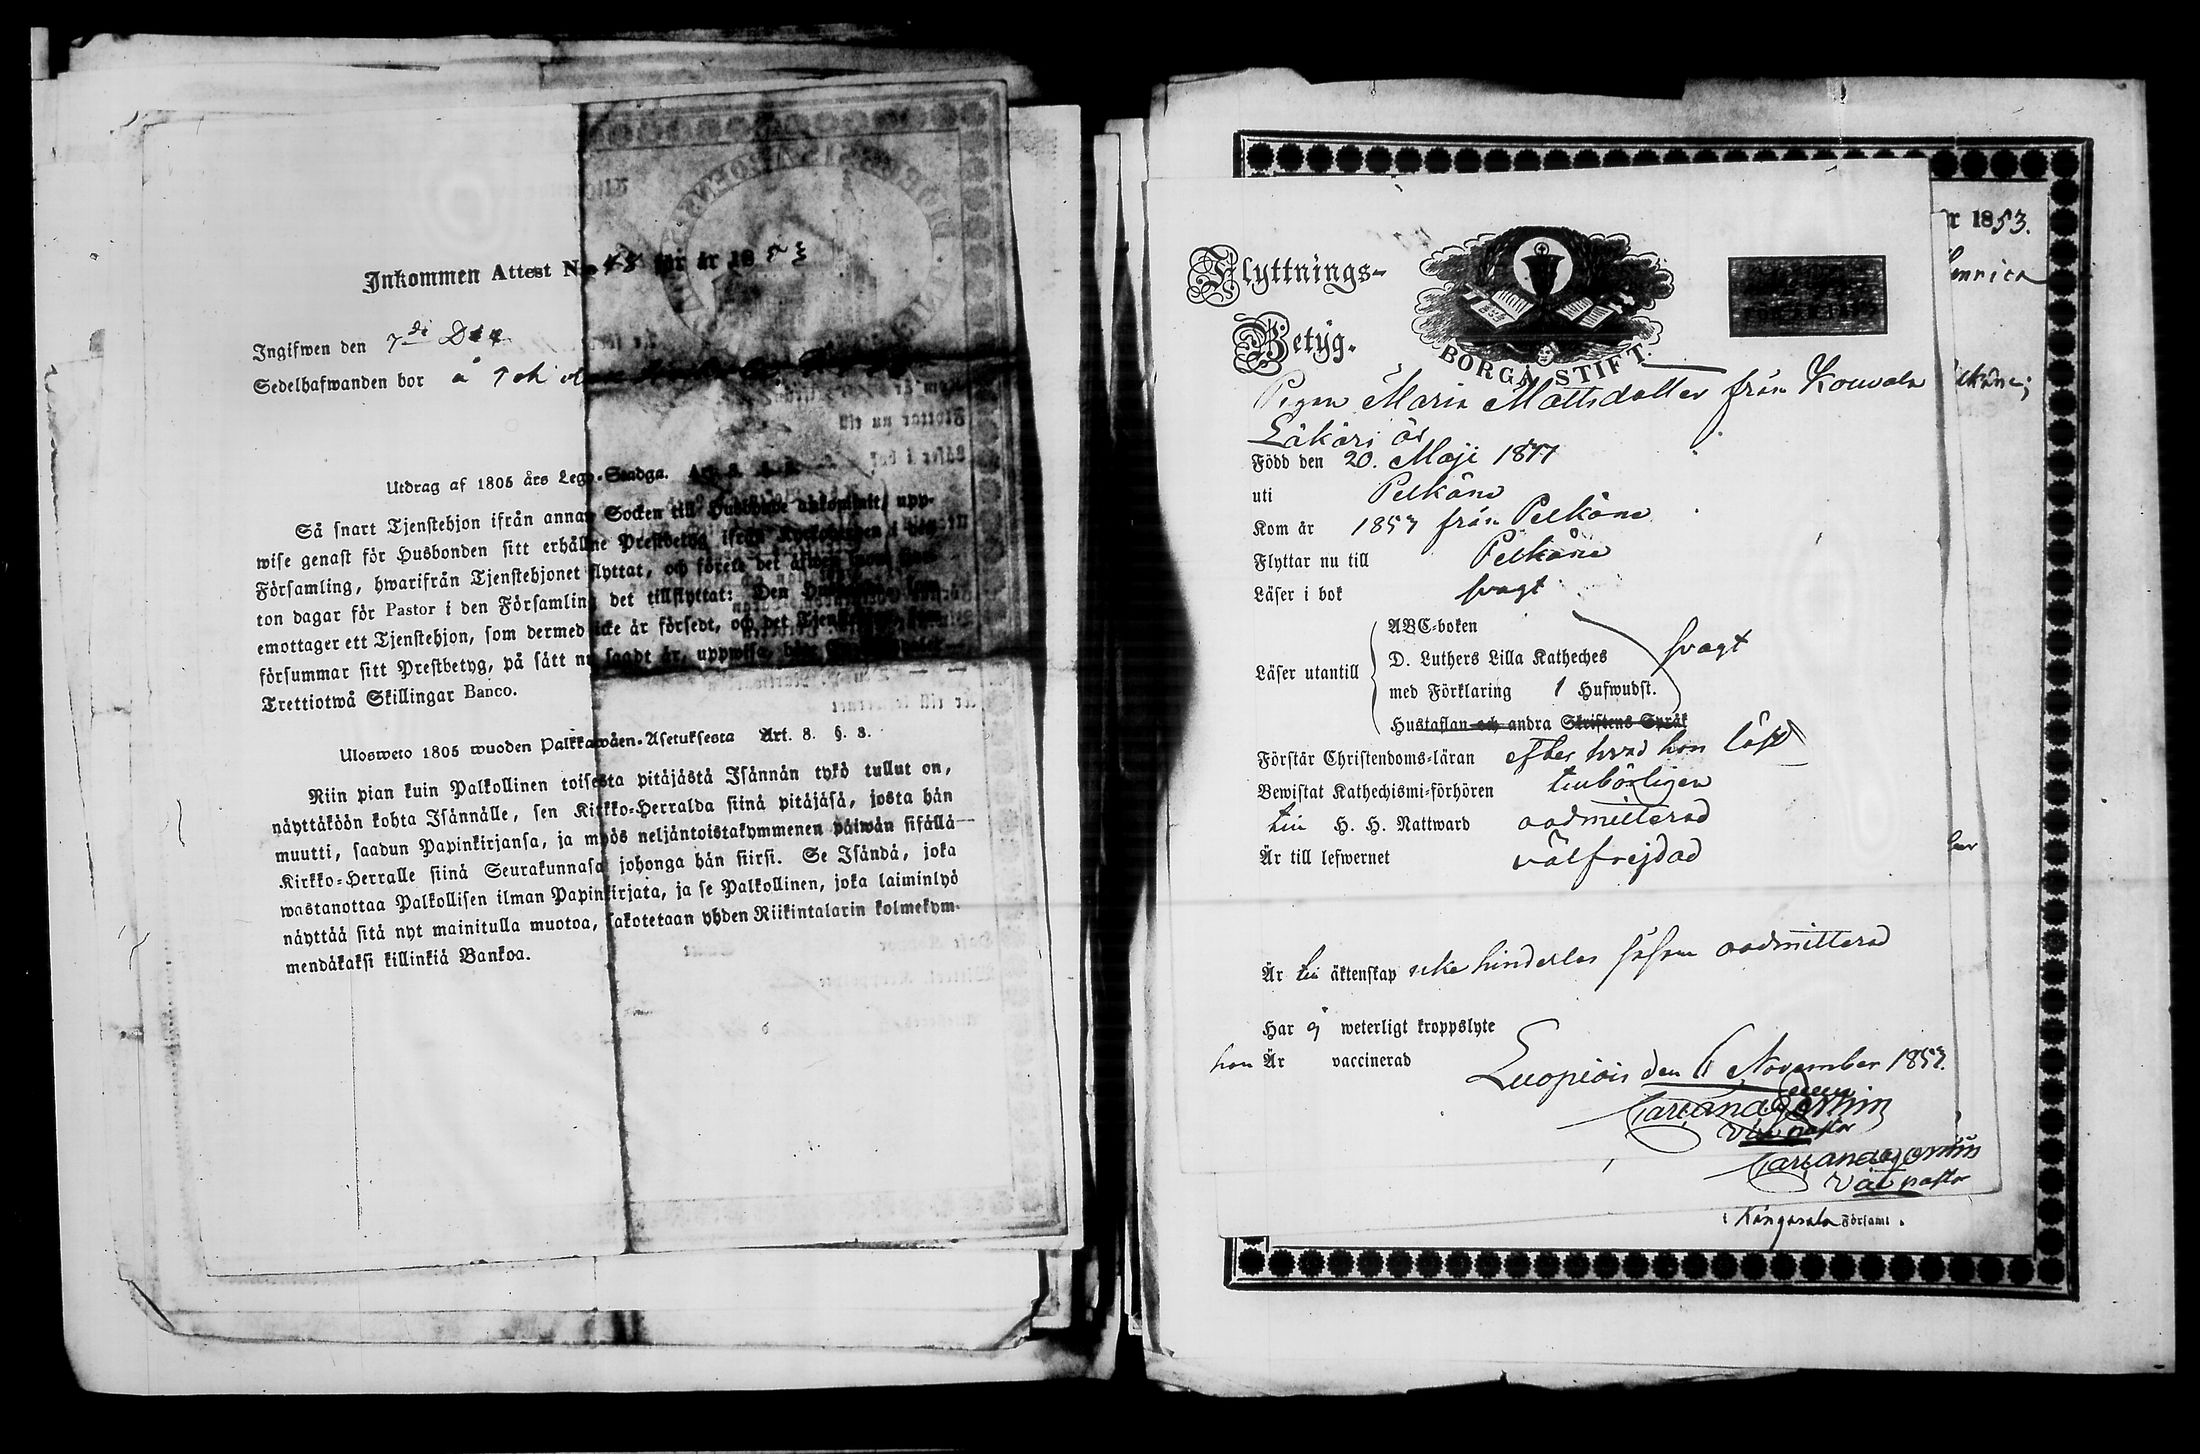 Inkommen Attest N:o 43 för år 1853
Ingifwen den 7de Dec
Sedelhafwanden bor å
Utdrag af 1805 års Lego-Stadga. Art. 8. §. 8.
Så snart Tjenstehjon ifrån annan Socken till Husbonde ankommit, upp-
wise genast för Husbonden sitt erhållne Prestbetyg ifrån Kyrkoherden i den
Församling, hwarifrån Tjenstehjonet flyttat, och förete det äfwen inom fjor-
ton dagar för Pastor i den Församling det tillflyttat: Den Husbonde, som
emottager ett Tjenstehjon, som dermed icke är försedt, och det Tjenstehjon, som
försummar sitt Prestbetyg, på sått nu sagdt är, uppwisa, böte
Trettiotwå Skillingar Banco.
Ulosweto 1805 wuoden Palkkawäen-Asetuksesta Art. 8. §. 8.
Niin pian kuin Palkollinen toisesta pitäjästä Isännän tykö tullut on,
näyttäköön kohta Isännälle, sen Kirkko-Herralda siinä pitäjäsä, josta hän
muutti, saadun Papinkirjansa, ja myös neljäntoistakymmenen päiwän sisällä
Kirkko-Herralle siinä Seurakunnasa johonga hän siirsi. Se Isändä, joka
wastanottaa Palkollisen ilman Papinkirjata, ja se Palkollinen, joka laiminlyö
näyttää sitä nyt mainitulla muotoa, sakotetaan yhden Riikintalarin kolmekym-
mendäkaksi killinkiä Bankoa.
Flyttnings-
Betyg.
BORGÅ STIFT.
r 1853.
Henrica
Pigan Maria Mattsdotter från Kouvala
Läkäri är
Född den 20. Maji 1811
uti Pelkäne
Kom år 1857 från Pelkäne
Flyttar nu till Pelkäne
Läser i bok svagt
Läser utantill
ABC-boken
D. Luthers Lilla Katheches svagt
med Förklaring 1 Hufwudst.
Hustaflan och andra Skriftens Språk
Förstår Christendoms-läran efter hvad hon läst
Bewistat Kathechismi-förhören tillbörligen
till H. H. Nattward oadmitterad
Är till lefwernet välfrejdad
Är till äktenskap icke hinderlös såsom oadmitterad
Har ej weterligt kroppslyte
hon Är vaccinerad
Luopiois den 6 November 1857.
Vice pastor
Vice pastor
i Kangasala Församl.